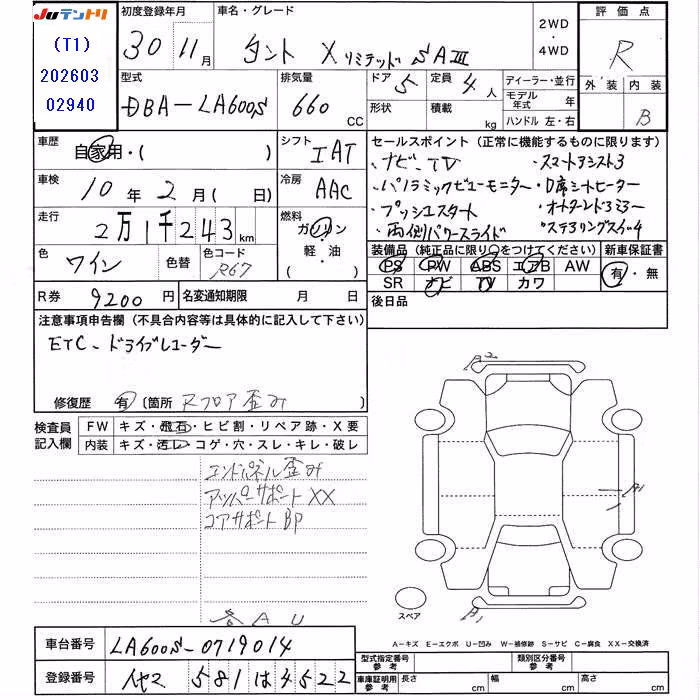 JUテントリ
(T1)
202603
02940
初度登録年月
30 11月
車名・グレード
タント X リミテッド SAⅢ
2WD
・
4WD
評価点
R
外装 内装
B
型式
DBA-LA600S
排気量
660 CC
ドア 5
形状
定員 4人
積載 kg
ディーラー・並行
モデル年式 年
ハンドル 左・右
車歴
自家用・( )
シフト IAT
車検
10年 2月( 日)
冷房 AAC
走行
2万1千243km
燃料
ガソリン
・
軽・油
・( )
色
ワイン
色替
色コード
R67
R券 9200円
名変通知期限 月 日
セールスポイント(正常に機能するものに限ります)
・ナビ、TV ・スマートアシスト3
・パノラミックビューモニター ・D席シートヒーター
・プッシュスタート ・オートエンドミラー
・両側パワースライド ・ステアリングスイッチ
装備品(純正品に限り○をつけてください)
PS PW ABS エアB AW
SR ナビ TV カワ
新車保証書
有・無
後日品
注意事項申告欄(不具合内容等は具体的に記入して下さい)
ETC、ドライブレコーダー
修復歴 有 〔箇所 Rフロア歪み 〕
検査員記入欄
FW キズ・飛石・ヒビ割・リペア跡・X要
内装 キズ・汚レ・コゲ・穴・スレ・キレ・破レ
エンドパネル歪み
アッパーサポートXX
コアサポートBP
各AU
A2
A1
B1
スペア
A-キズ E-エクボ U-凹み W-補修跡 S-サビ C-腐食 XX-交換済
車台番号 LA600S-0719014
登録番号 581 は 4522
型式指定番号参考
類別区分番号参考
車庫証明用参考 長さ cm 幅 cm 高さ cm